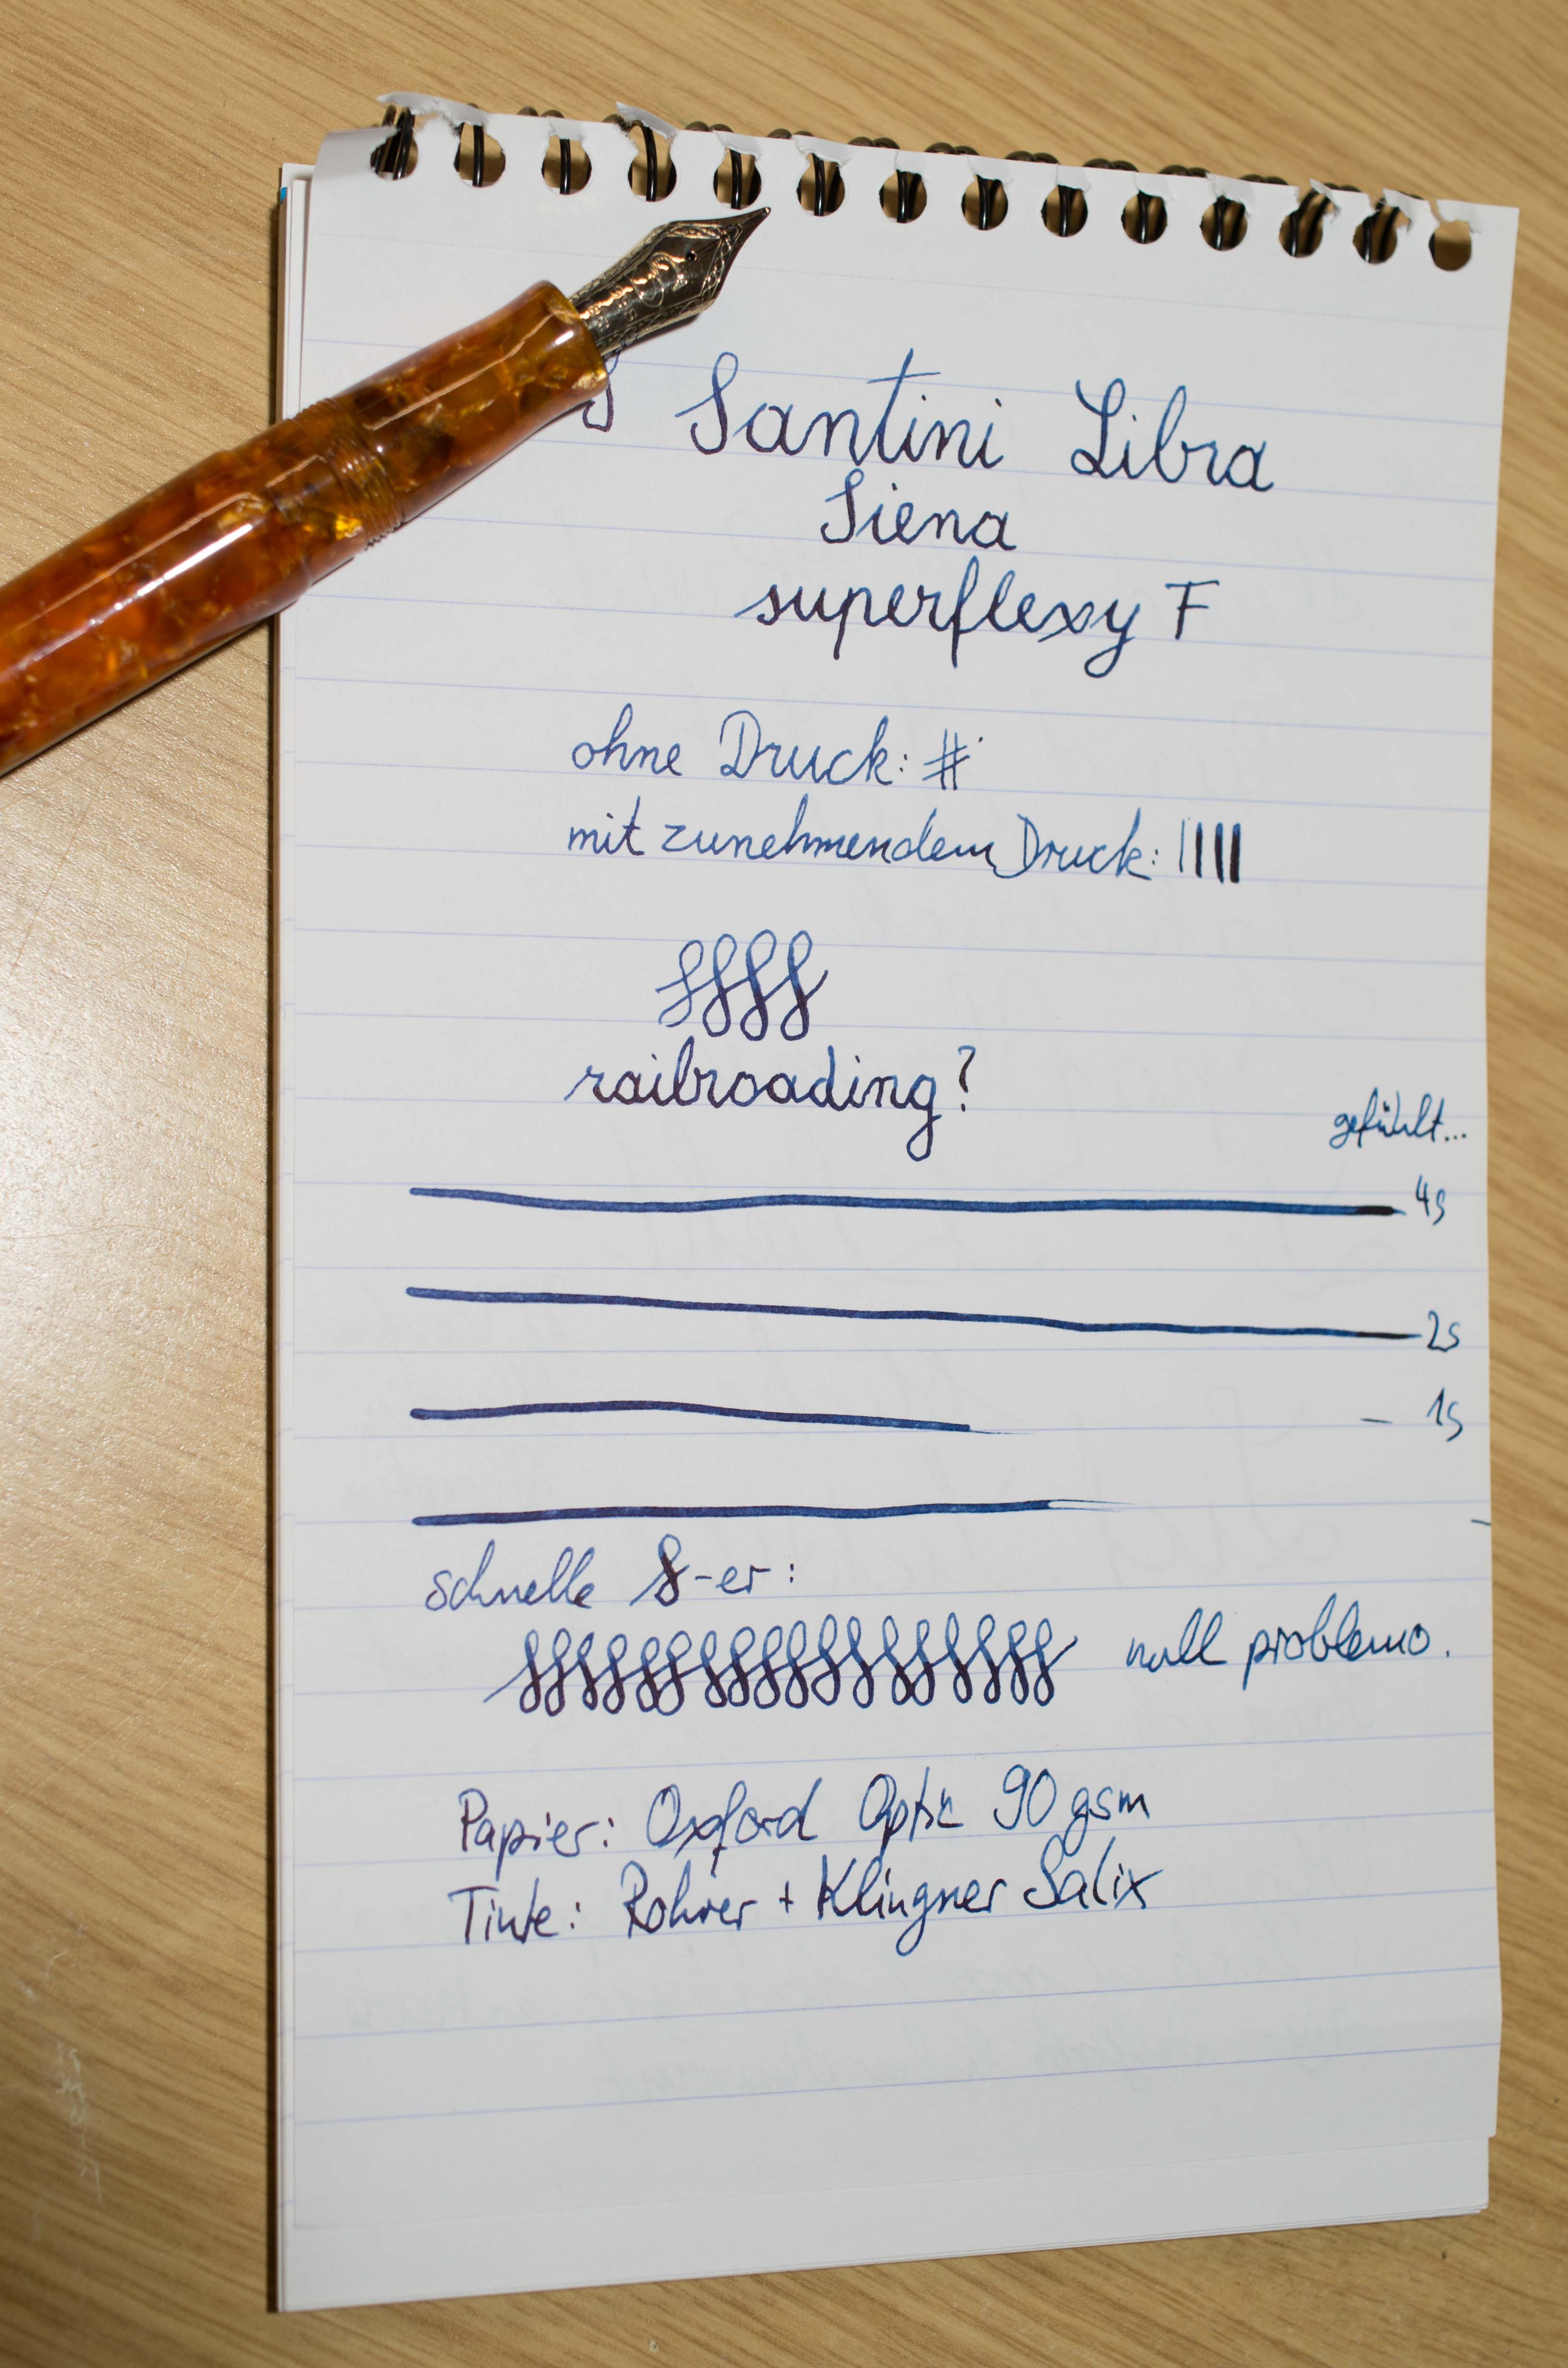 Santini Libra
Siena
superflexy F
ohne Druck: #
mit zunehmendem Druck: |||||
ssss
railroading?
gefühlt...
4s
2s
1s
schnelle S-er:
null problemo.
Papier: Oxford Optic 90 gsm
Tinte: Rohrer + Klingner Salix